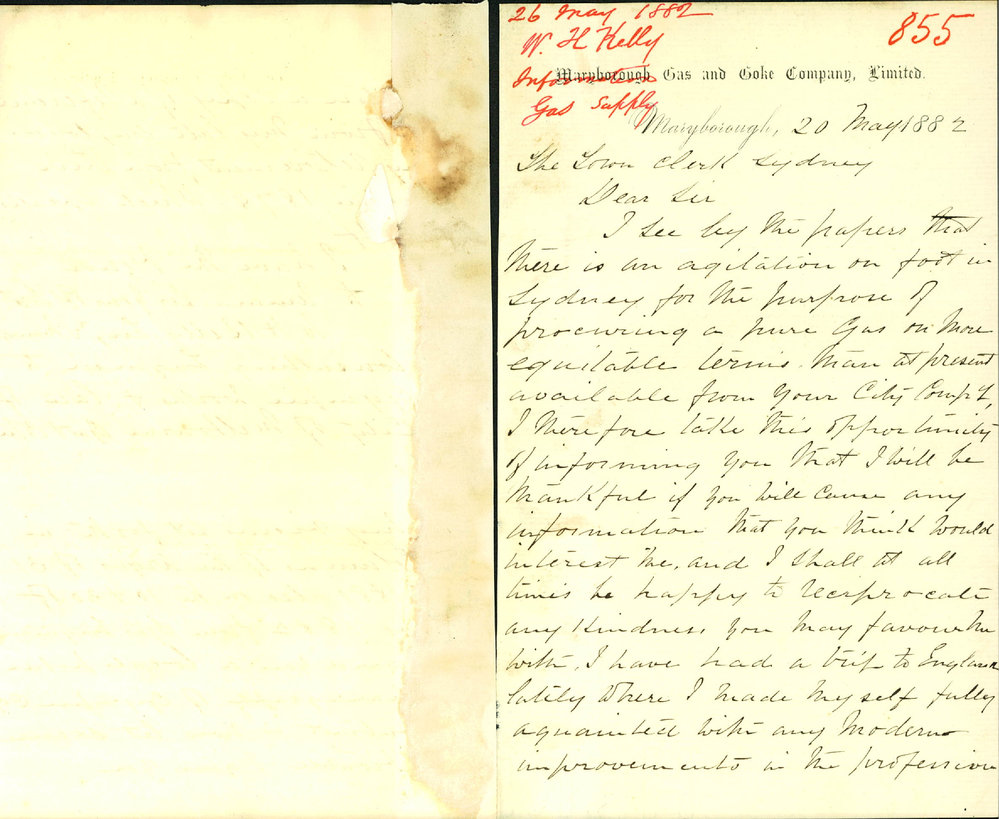 26 May 1882
W. H Kelly
Information
Gas Supply
855
Maryborough Gas and Coke Company, Limited.
Maryborough, 20 May 1882
The Town Clerk Sydney
Dear Sir
I see by the papers that
there is an agitation on foot in
Sydney for the purpose of
procuring a pure Gas on more
equitable terms than at present
available from your City Compy,
I therefore take this opportunity
of informing you that I will be
thankful if you will cause any
information that you think would
interest me, and I shall at all
times be happy to reciprocate
any kindness you may favour me
with, I have had a trip to England
lately where I made myself fully
aquainted with any modern
improvements in the profession